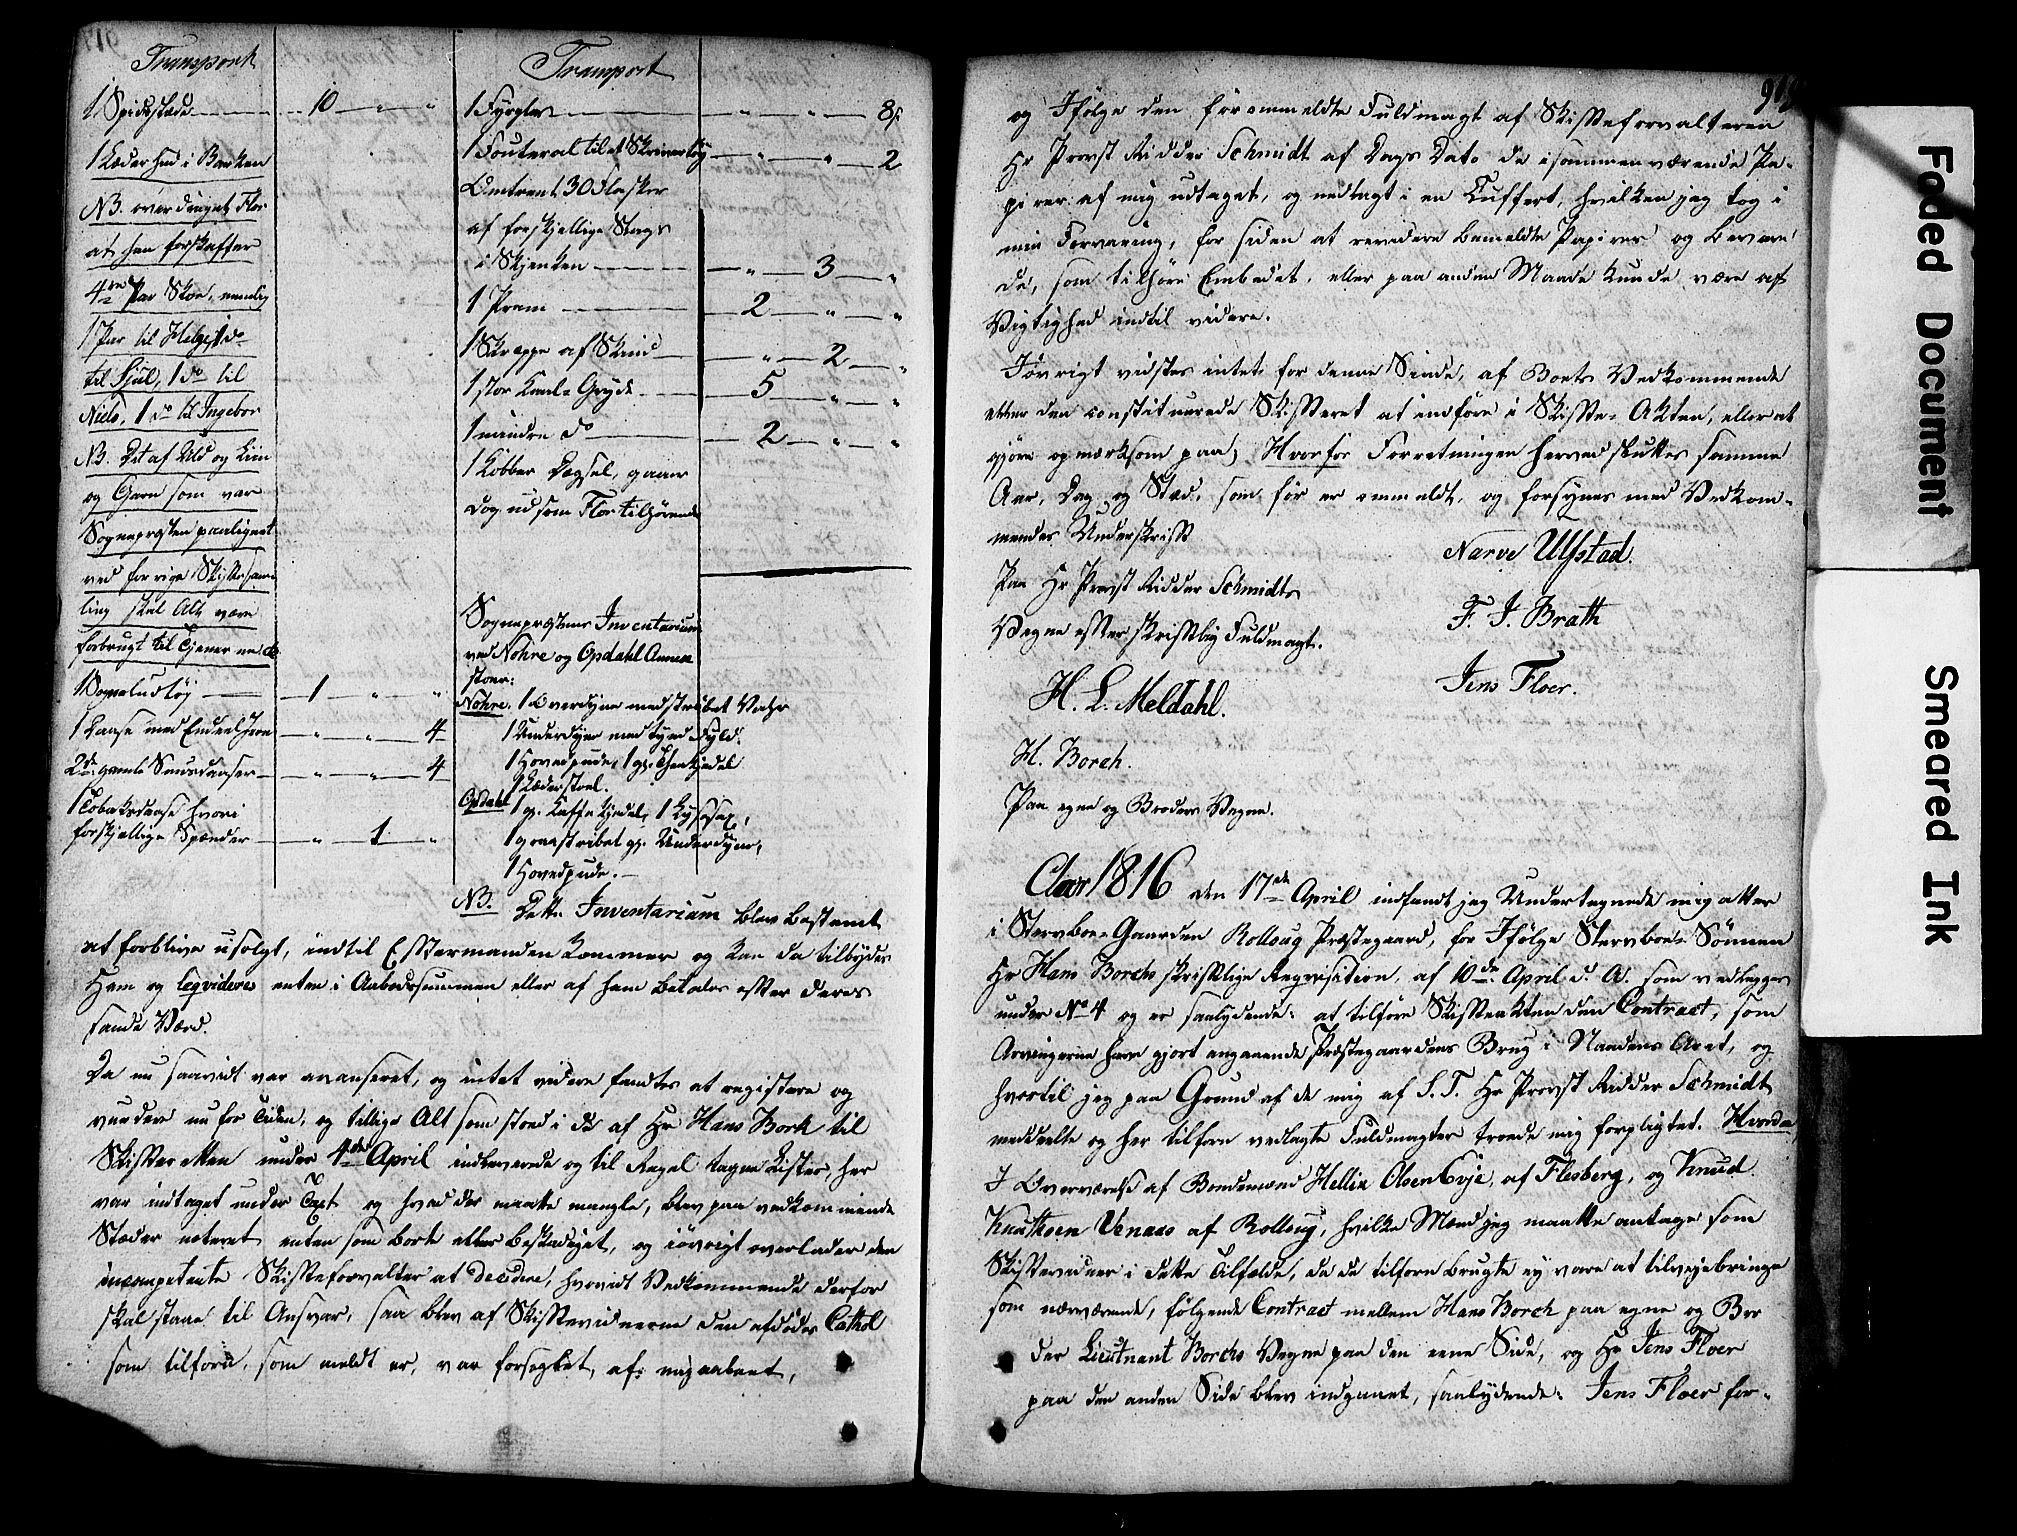 Transport
1 Spidestade 10 " "
1 Læderhud i Barken
NB. overdraget Flor
at han forskaffer
4re Par Skoe, nemlig
1 Par til Helge, 1 do
til Siul, 1 do til
Niels, 1 do til Ingebor
NB. Det af Uld og Liin
og Garn som var
Sognepræsten paalignet
ved forrige Skiftesam-
ling skal Alt være
forbrugt til Tjenerne
1 1 " "
1 Daase med Endeel Jern " " 4
2de gamle Snusdaaser " " 4
1 Tobaksdaase hvori
forskjellige Spænder " 1 "
Transport
1 Fyrglas " " 8s
1 Fouteral til et Skrivertøy " " 2
Omtrent 30 Flasker
af forskjellige Slags
i Skjenken " 3 "
1 Pram 2 " "
1 Skreppe af Skind " 2 "
1 stor Gryde 5 " "
1 mindre do 2 " "
1 Kobber Degsel, gaaer
dog ud som Flor tilhørende
Sognepræstens Inventarium
ved Nohre og Opdahl Annex
stoer:
Nohre. 1 Overdyne med stribet Vahr
1 Underdyne med Fyld.
1 Hovedpude, 1 gl. Theekjedel
1 Læderstoel.
Opdahl 1 gl. Kaffe Kjedel, 1 Lyssax,
1 graastribet gl. Underdyne,
1 Hovedpude.
NB. Dette Inventarium blev bestemt
at forblive usolgt, indtil Eftermanden kommer og kan da tilbydes
Ham og leqvideres enten i Aabodssummen eller af ham betales efter deres
sande Værd.
Da nu saavidt var avanseret, og intet videre fandtes at registere og
vurdere nu for Tiden, og tillige Alt som stod i de af Hr Hans Bork til
Skifteretten under 4de April indleverede og til Regel tagne Lister, her
var indtaget under Taxt og hvad der maatte mangle, blev paa vedkommende
Stæder noteret enten som borte eller beskadiget, og iøvrigt overlader den
incompetente Skifteforvalter at decidere, hvorvidt Vedkommende derfor
skal staae til Ansvar, saa blev af Skiftevidnerne den afdødes Cathol
som tilforn, som meldt er, var forseglet af mig aabnet,
919
og Ifølge den førommeldte Fuldmagt af Skifteforvalteren
Hr Provst Ridder Schmidt af Dags Dato de isammenværende Pa-
pirer af mig udtaget, og nedlagt i en Cuffert, hvilken jeg tog i
min Forvaring, for siden at revedere bemeldte Papirer og bevare
de, som tilhøre Embedet, eller paa anden Maade kunde være af
Vigtighed indtil videre.
Iøvrigt vidstes intet for denne Sinde, af Boets Vedkommende
eller den constituerede Skifteret at indføre i Skifte-Akten, eller at
gjøre opmerksom paa; Hvorfor Forretningen herved sluttes samme
Aar, Dag og Sted, som før er ommeldt, og forsynes med Vedkom-
mendes Underskrift
Narve Ulfstad.
Paa Hr Provst Ridder Schmidts
Vegne efter skriftlig Fuldmagt.
F. J. Brath
H. L. Meldahl.
Jens Floer.
H. Borch.
Paa egne og Broders Vegne.
Aar 1816 den 17de April indfandt jeg Undertegnede mig atter
i Stervboe-Gaarden Rolloug Præstegaard, for Ifølge Stervboe-Sønnen
Hr Hans Borchs skriftlige Reqvisition, af 10de April d. A. som vedlegges
under No 4 og er saalydende: at tilføre Skifteakten den Contract, som
Arvingerne have gjort angaaende Præstegaardens Brug i Naadens Aaret, og
hvortil jeg paa Grund af de mig af S. T. Hr Provst Ridder Schmidt
meddeelte og her tilforn vedlagte Fuldmagter troede mig forpligtet. Hvorda
I Overværelse af Bondemænd Hellik Olsen Evje, af Flesberg, og Knud
Knutsen Venaas af Rolloug, hvilke Mænd jeg maatte antage som
Skiftevidner i dette Tilfælde, da de tilforn brugte ey vare at tilvejebringe
som nærværende, følgende Contract mellem Hans Borch paa egne og Bro
der Lieutnant Borchs Vegne paa den eene Side, og Hr Jens Floer
paa den anden Side blev indgaaet, saalydende: Jens Floer for-
Faded Document
Smeared Ink